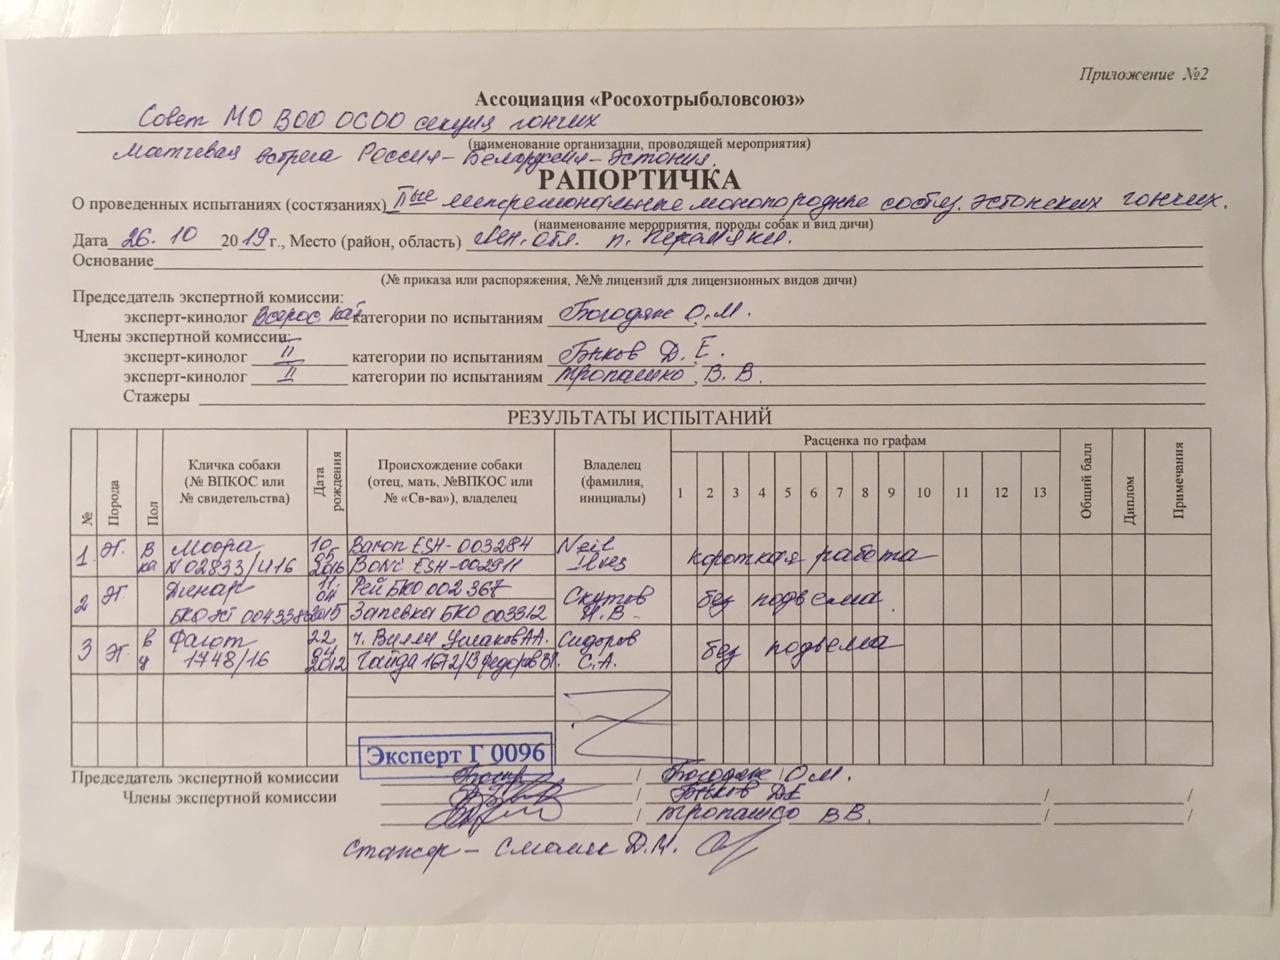 Приложение №2
Ассоциация «Росохотрыболовсоюз»
Совет МО ВОО ОСОО секция гончих
(наименование организации, проводящей мероприятия)
Матчевая встреча Россия-Белоруссия-Эстония.
РАПОРТИЧКА
О проведенных испытаниях (состязаниях) IIые межрегиональные монопородные состяз. эстонских гончих.
(наименование мероприятия, породы собак и вид дичи)
Дата 26.10 2019 г., Место (район, область) Лен. обл. п. Пермяки.
Основание
(№ приказа или распоряжения, №№ лицензий для лицензионных видов дичи)
Председатель экспертной комиссии:
эксперт-кинолог Всерос. кат категории по испытаниям О.М.
Члены экспертной комиссии:
эксперт-кинолог II категории по испытаниям Д. Е.
эксперт-кинолог II категории по испытаниям Тропашко В. В.
Стажеры
РЕЗУЛЬТАТЫ ИСПЫТАНИЙ
№ Порода Пол Кличка собаки (№ ВПКОС или № свидетельства) Дата рождения Происхождение собаки (отец, мать, №ВПКОС или № «Св-ва»), владелец Владелец (фамилия, инициалы) Расценка по графам Общий балл Диплом Примечания
1 2 3 4 5 6 7 8 9 10 11 12 13
1. эг. В Моора 10 Baron ESH-003284 Neil короткая работа
ка N02833/И16 05 2016 Boni ESH-002911 Ilves
2 эг. Динар 11 Рей БКО 002367 Скутов без подъема
04 2015 Запевка БКО 003312 В.
3 эг. в Фагот 22 ч. Вилли Ушаков АА. Сидоров без подъема
1748/16 2012 Гайда 1672/13 Федоров С.А.
Эксперт Г 0096
Председатель экспертной комиссии / О.М.
Члены экспертной комиссии / Д.Е /
/ Тропашко В В. /
Стажер - Д.М.